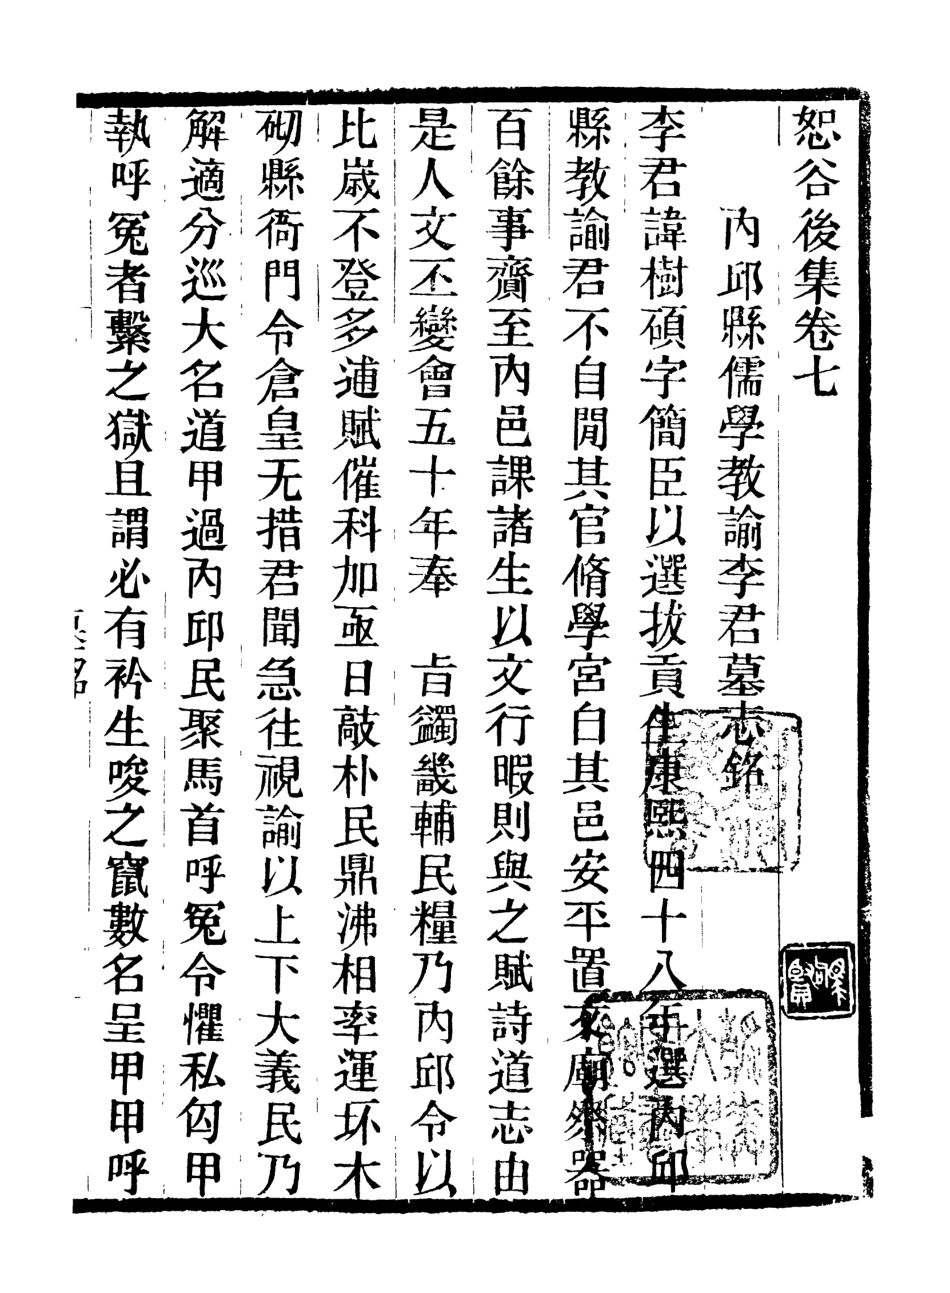 恕谷後集卷七
內邱縣儒學教諭李君墓志銘
李君諱樹碩字簡臣以選拔貢生康熙四十八年選內邱
縣教諭君不自閒其官脩學宮白其邑安平置文廟祭器
百餘事齎至內邑課諸生以文行暇則與之賦詩道志由
是人文丕變會五十年奉　旨蠲畿輔民糧乃內邱令以
比歲不登多逋賦催科加亟日敲朴民鼎沸相率運坏木
砌縣衙門令倉皇无措君聞急往視諭以上下大義民乃
解適分巡大名道甲過內邱民聚馬首呼冤令懼私囪甲
執呼冤者繫之獄且謂必有衿生唆之竄數名呈甲甲呼